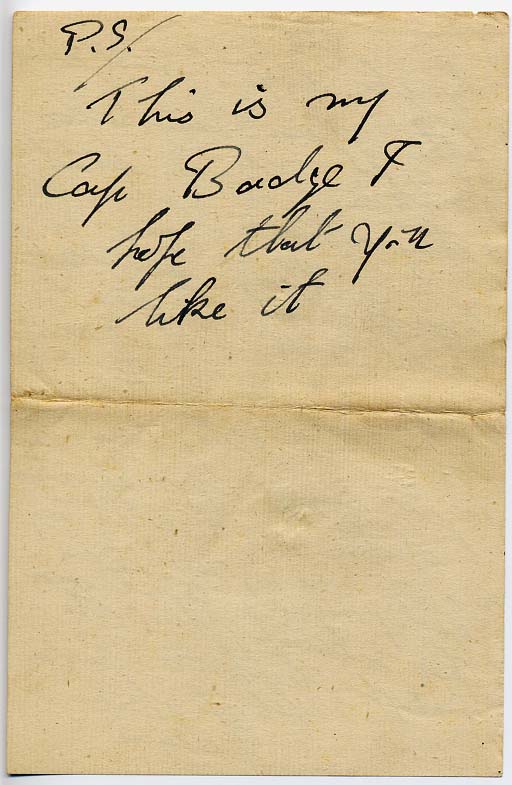 P.S./
This is my
Cap Badge I
hope that you
like it